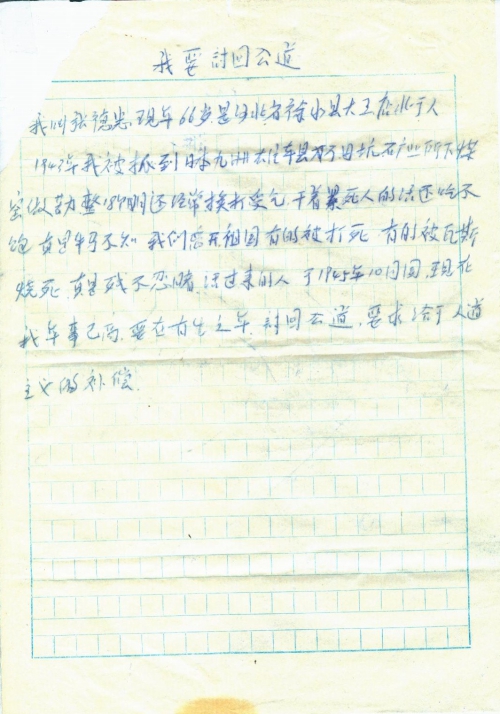 我要讨回公道
我叫张德忠现年66岁是河北省徐水县大王店北于人
1943年我被抓到日本九洲佐 县 子日坑石产业所下煤
窑做劳 整 时间还经常挨打受气干着累死人的活还吃不
饱真是牛马不如我们离开祖国有的被打死有的被瓦斯
烧死真是残不忍睹活过来的人于1945年10月回国现在
我年事已高要在有生之年讨回公道,要求给于人道
主义的补偿.